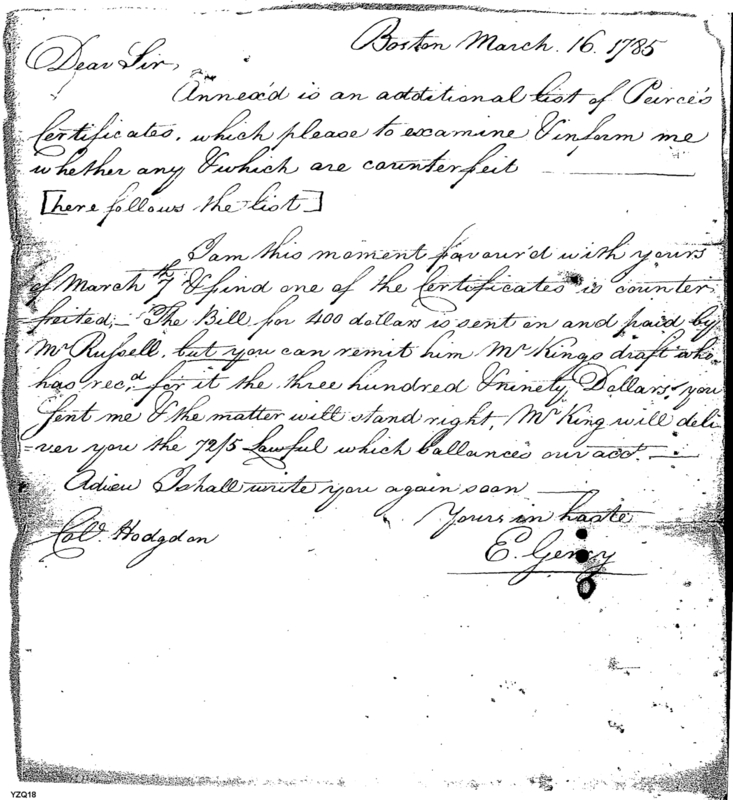 Boston March. 16. 1785
Dear Sir,
Annex'd is an additional list of Peirce's
Certificates, which please to examine & inform me
whether any & which are counterfeit
[here follows the list]
I am this moment favour'd with yours
of March 7th & find one of the Certificates is counter
feited,— The Bill for 400 dollars is sent on and paid by
Mr Russell, but you can remit him Mr Kings draft who
has rec.d for it the three hundred & ninety Dollars, you
sent me & the matter will stand right, Mr King will deli-
=ver you the 72/5 Lawful which ballances our acct.
Adieu I shall write you again soon
Yours in haste
Colo. Hodgdon
E. Gerry
YZQ18